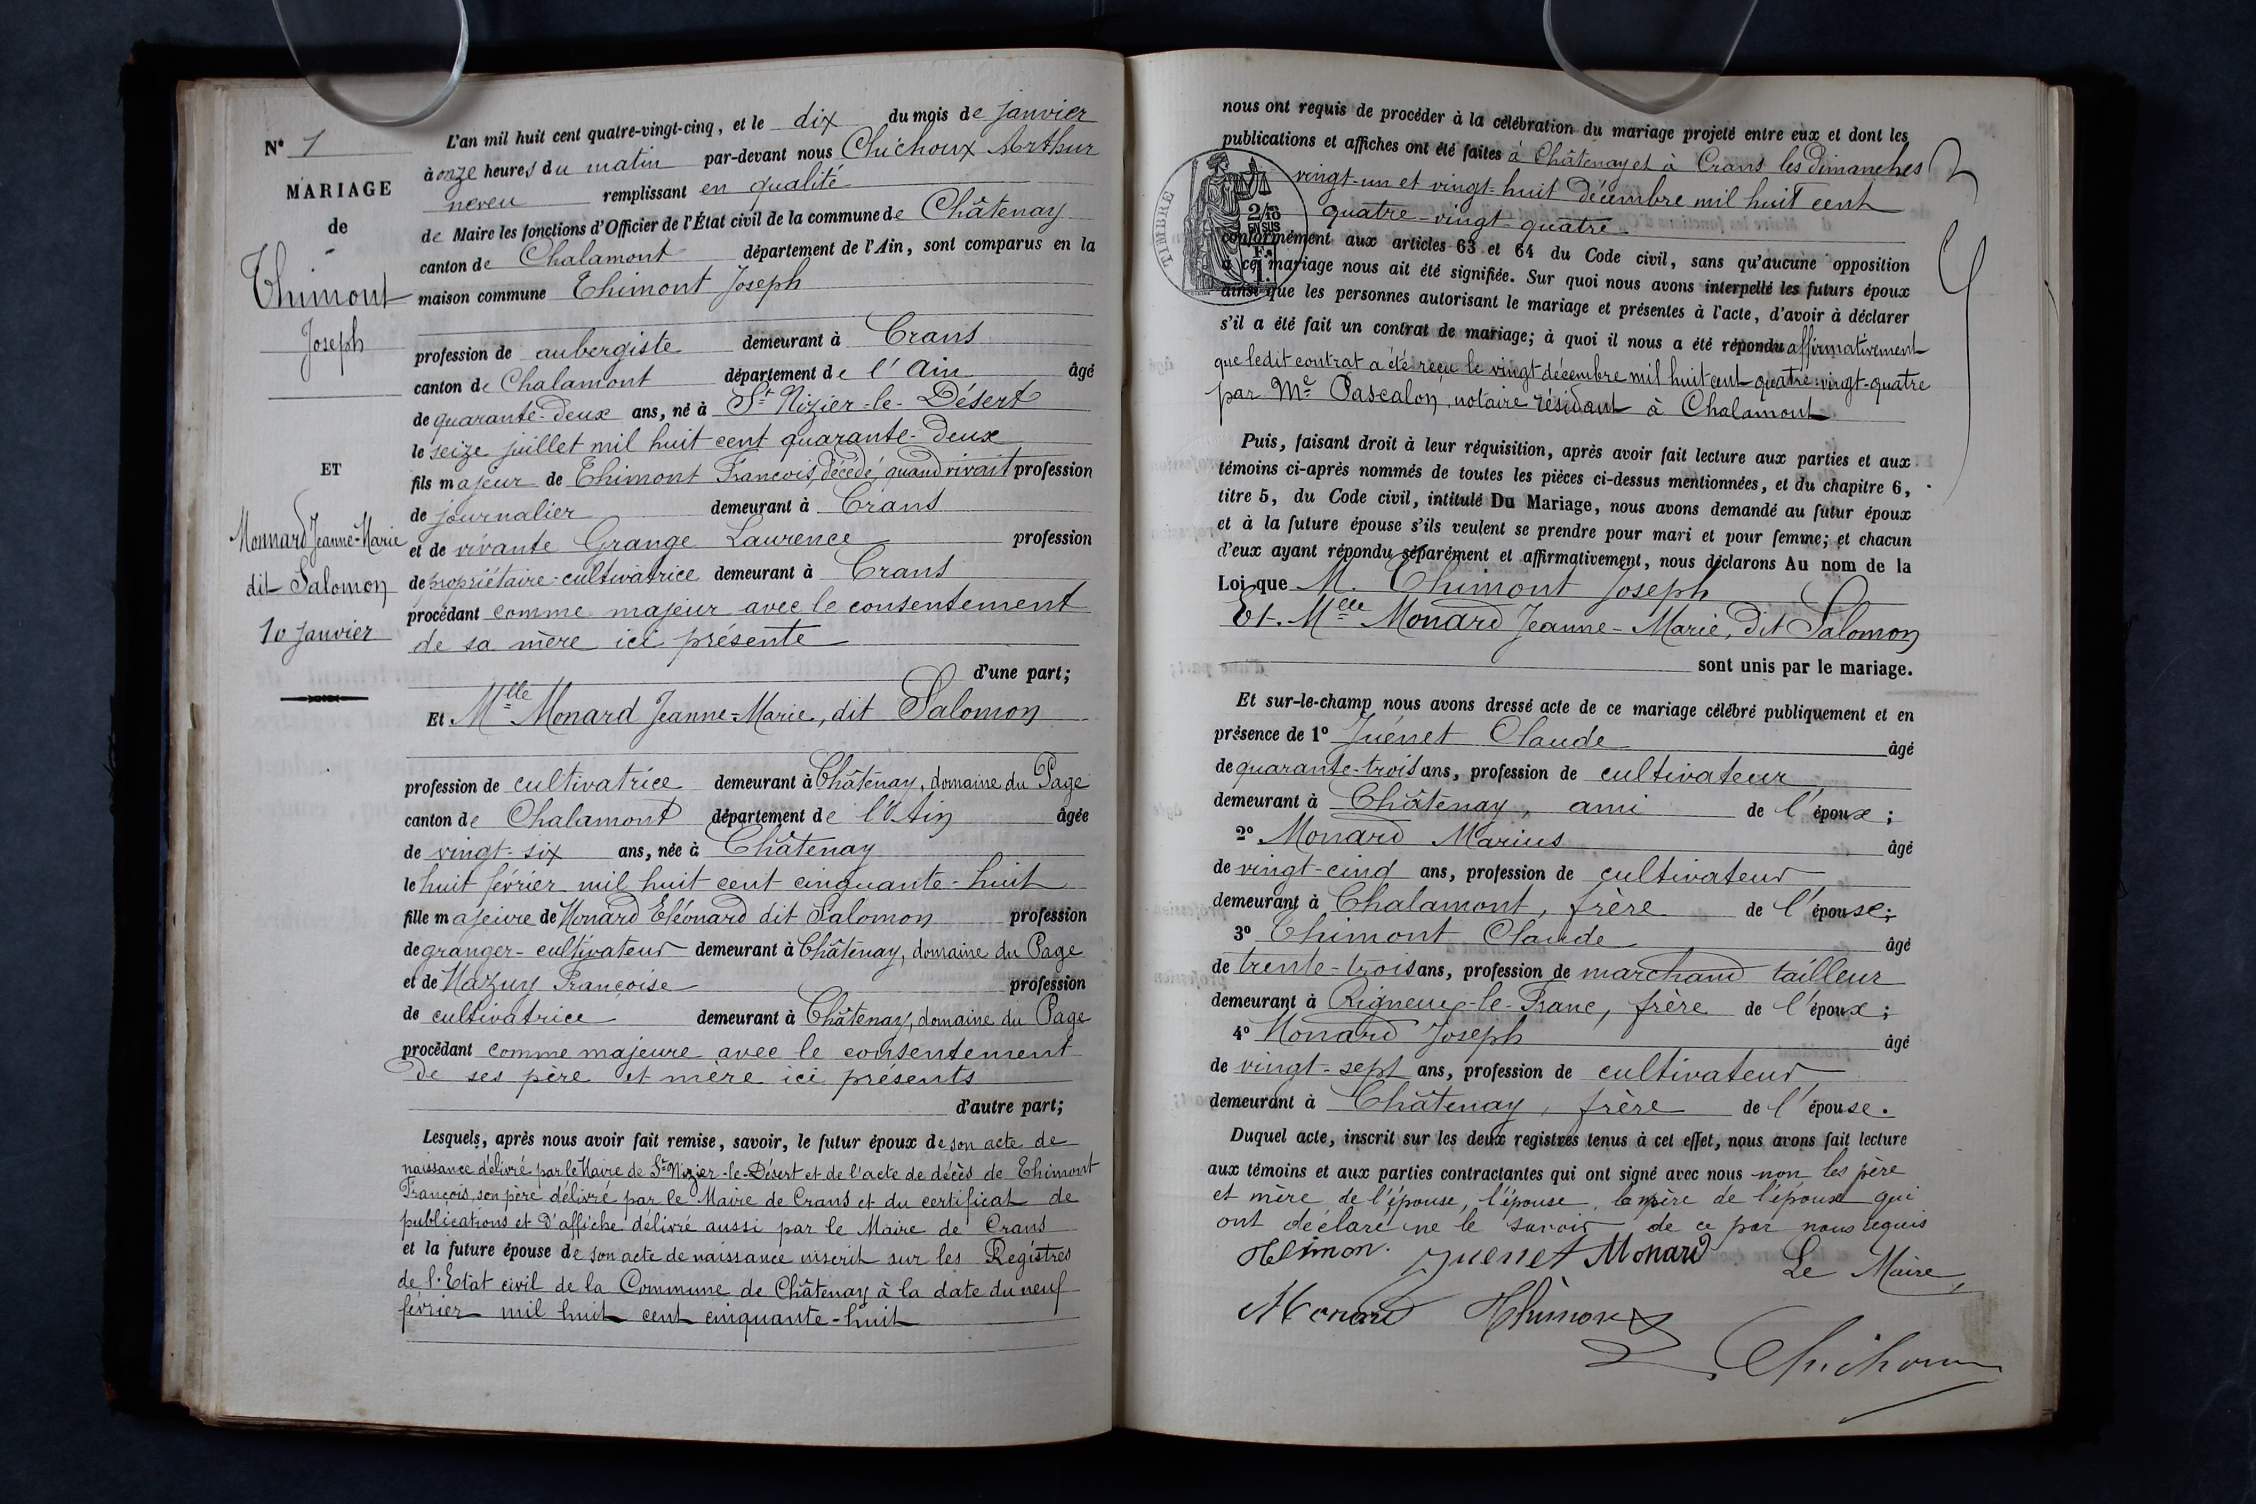 N° 1
MARIAGE
de
Thimont
Joseph
ET
Monnard Jeanne-Marie
dit Salomon
10 janvier
L'an mil huit cent quatre-vingt-cinq, et le dix du mois de janvier
à onze heures du matin par-devant nous Chichoux Arthur
neveu remplissant en qualité
de Maire les fonctions d'Officier de l'État civil de la commune de Châtenay
canton de Chalamont département de l'Ain, sont comparus en la
maison commune Thimont Joseph
profession de aubergiste demeurant à Crans
canton de Chalamont département de l'Ain âgé
de quarante-deux ans, né à St Nizier-le-Désert
le seize juillet mil huit cent quarante-deux
fils majeur de Thimont François, décédé, quand vivait profession
de journalier demeurant à Crans
et de vivante Grange Laurence profession
de propriétaire-cultivatrice demeurant à Crans
procédant comme majeur avec le consentement
de sa mère ici présente
d'une part;
Et Mlle Monard Jeanne-Marie, dit Salomon
profession de cultivatrice demeurant à Châtenay, domaine du Page
canton de Chalamont département de l'Ain âgée
de vingt-six ans, née à Châtenay
le huit février mil huit cent cinquante-huit
fille majeure de Monard Eléonard dit Salomon profession
de granger-cultivateur demeurant à Châtenay, domaine du Page
et de Mazuy Françoise profession
de cultivatrice demeurant à Châtenay, domaine du Page
procédant comme majeure avec le consentement
de ses père et mère ici présents
d'autre part;
Lesquels, après nous avoir fait remise, savoir, le futur époux de son acte de
naissance délivré par le Maire de St Nizier-le-Désert et de l'acte de décès de Thimont
François, son père délivré par le Maire de Crans et du certificat de
publications et d'affiche délivré aussi par le Maire de Crans
et la future épouse de son acte de naissance inscrit sur les Registres
de l'Etat civil de la Commune de Châtenay à la date du neuf
février mil huit cent cinquante-huit
nous ont requis de procéder à la célébration du mariage projeté entre eux et dont les
publications et affiches ont été faites à Châtenay et à Crans les dimanches
vingt-un et vingt-huit décembre mil huit cent
quatre-vingt-quatre
TIMBRE
2/10 EN SUS
1 F.
conformément aux articles 63 et 64 du Code civil, sans qu'aucune opposition
à ce mariage nous ait été signifiée. Sur quoi nous avons interpellé les futurs époux
ainsi que les personnes autorisant le mariage et présentes à l'acte, d'avoir à déclarer
s'il a été fait un contrat de mariage; à quoi il nous a été répondu affirmativement
que ledit contrat a été reçu le vingt décembre mil huit cent quatre-vingt-quatre
par Me Pascalon, notaire résidant à Chalamont
Puis, faisant droit à leur réquisition, après avoir fait lecture aux parties et aux
témoins ci-après nommés de toutes les pièces ci-dessus mentionnées, et du chapitre 6,
titre 5, du Code civil, intitulé Du Mariage, nous avons demandé au futur époux
et à la future épouse s'ils veulent se prendre pour mari et pour femme; et chacun
d'eux ayant répondu séparément et affirmativement, nous déclarons Au nom de la
Loi que M. Thimont Joseph
Et Mlle Monard Jeanne-Marie, dit Salomon
sont unis par le mariage.
Et sur-le-champ nous avons dressé acte de ce mariage célébré publiquement et en
présence de 1° Juénet Claude âgé
de quarante-trois ans, profession de cultivateur
demeurant à Châtenay, ami de l'époux;
2° Monard Marius âgé
de vingt-cinq ans, profession de cultivateur
demeurant à Chalamont, frère de l'épouse;
3° Thimont Claude âgé
de trente-trois ans, profession de marchand tailleur
demeurant à Rigneux-le-Franc, frère de l'époux;
4° Monard Joseph âgé
de vingt-sept ans, profession de cultivateur
demeurant à Châtenay, frère de l'épouse.
Duquel acte, inscrit sur les deux registres tenus à cet effet, nous avons fait lecture
aux témoins et aux parties contractantes qui ont signé avec nous non les père
et mère de l'épouse, l'épouse, la mère de l'époux qui
ont déclaré ne le savoir de ce par nous requis
Juenet Monard Le Maire,
Monard Thimont
Chichoux